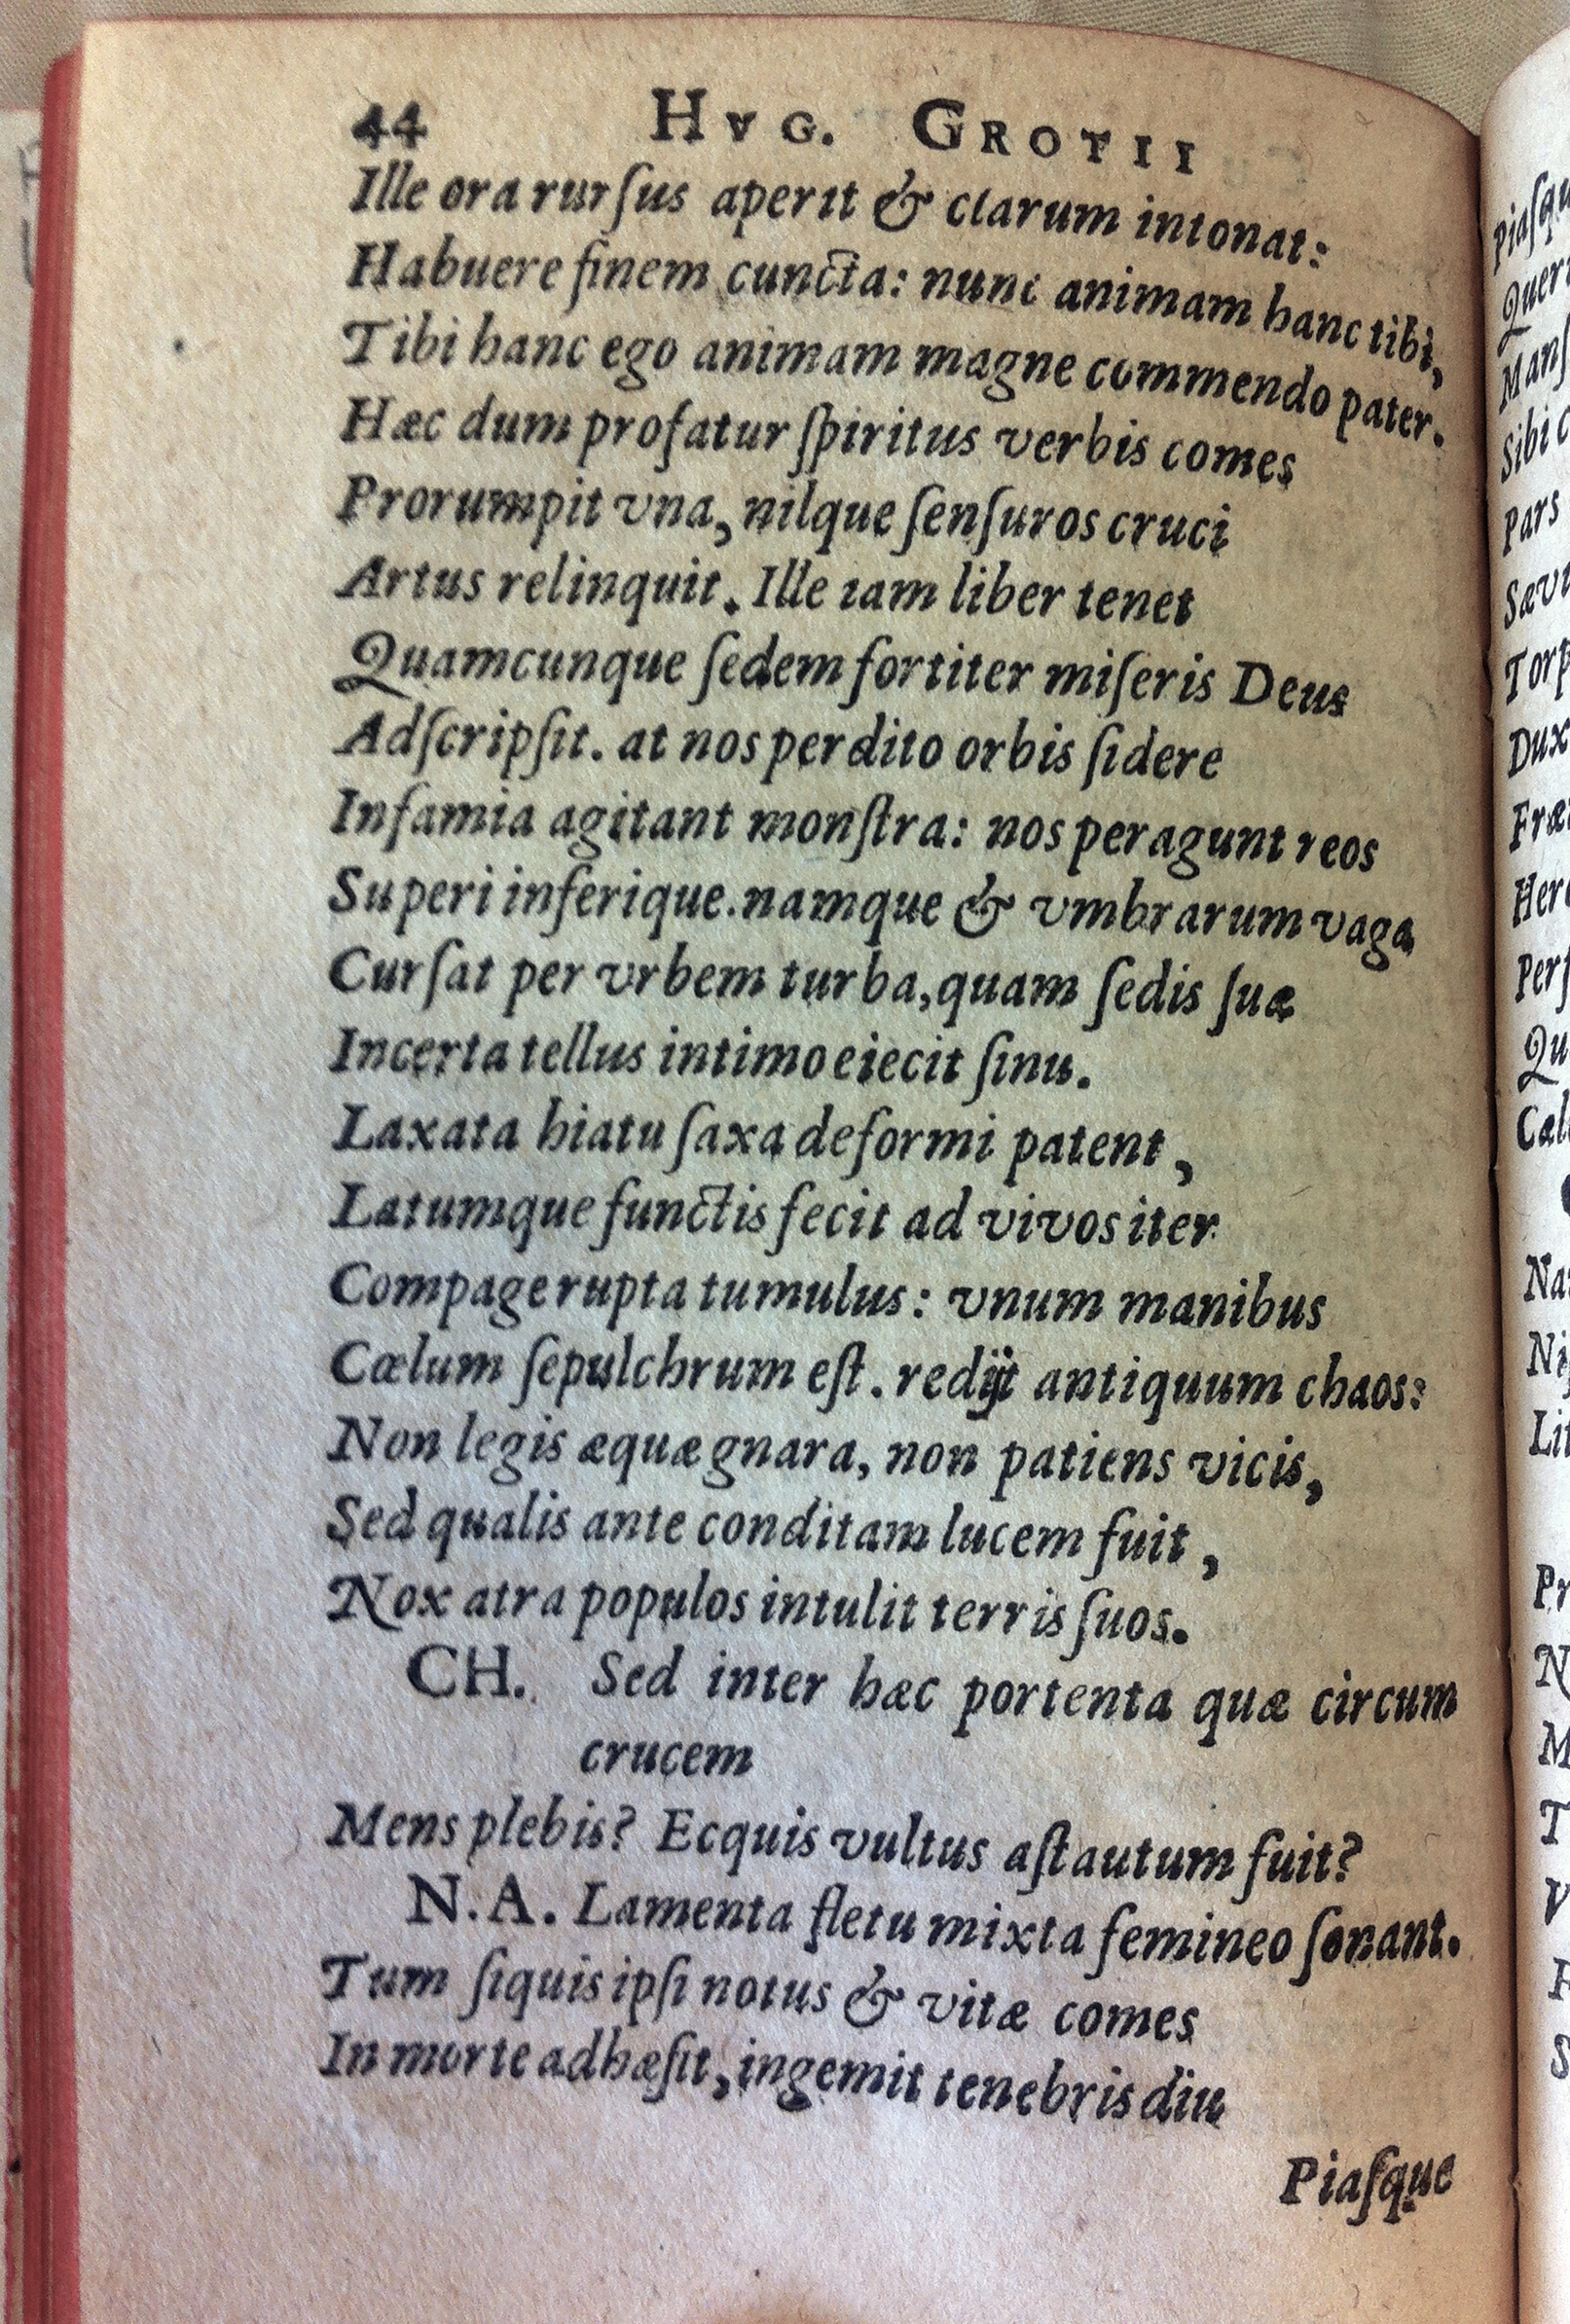 44 HVG. GROTII
Ille ora rurſus aperit & clarum intonat:
Habuere finem cuncta: nunc animam hanc tibi,
Tibi hanc ego animam magne commendo pater.
Hæc dum profatur ſpiritus verbis comes
Prorumpit vna, nilque ſenſuros cruci
Artus relinquit. Ille iam liber tenet
Quamcunque ſedem fortiter miſeris Deus
Adſcripſit. at nos perdito orbis ſidere
Infamia agitant monſtra: nos peragunt reos
Superi inferique. namque & vmbrarum vaga
Curſat per vrbem turba, quam ſedis ſuæ
Incerta tellus intimo eiecit ſinu.
Laxata hiatu ſaxa deformi patent,
Latumque functis fecit ad vivos iter
Compage rupta tumulus: vnum manibus
Cœlum ſepulchrum eſt. redijt antiquum chaos:
Non legis æquæ gnara, non patiens vicis,
Sed qualis ante conditam lucem fuit,
Nox atra populos intulit terris ſuos.
CH. Sed inter hæc portenta quæ circum
crucem
Mens plebis? Ecquis vultus aſtautum fuit?
N.A. Lamenta fletu mixta femineo ſonant.
Tum ſiquis ipſi notus & vitæ comes
In morte adhæſit, ingemit tenebris diu
Piaſque
Piaſqu
Mans
Sibi
Pars
Torp
Dux